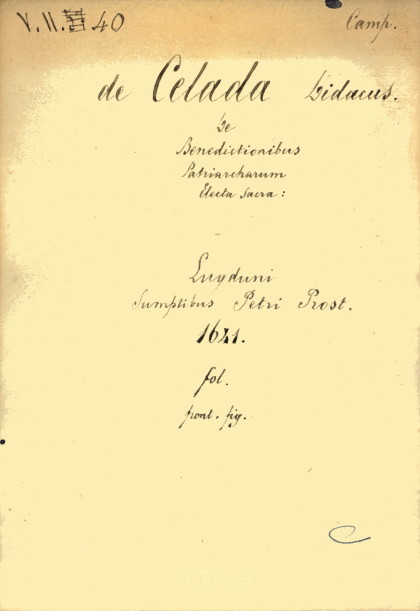 V. II. 40
Camp.
de Celada Didacus.
De
Benedictionibus
Patriarcharum
Electa Sacra:
Lugduni
Sumptibus Petri Prost.
1641.
fol.
front. fig.